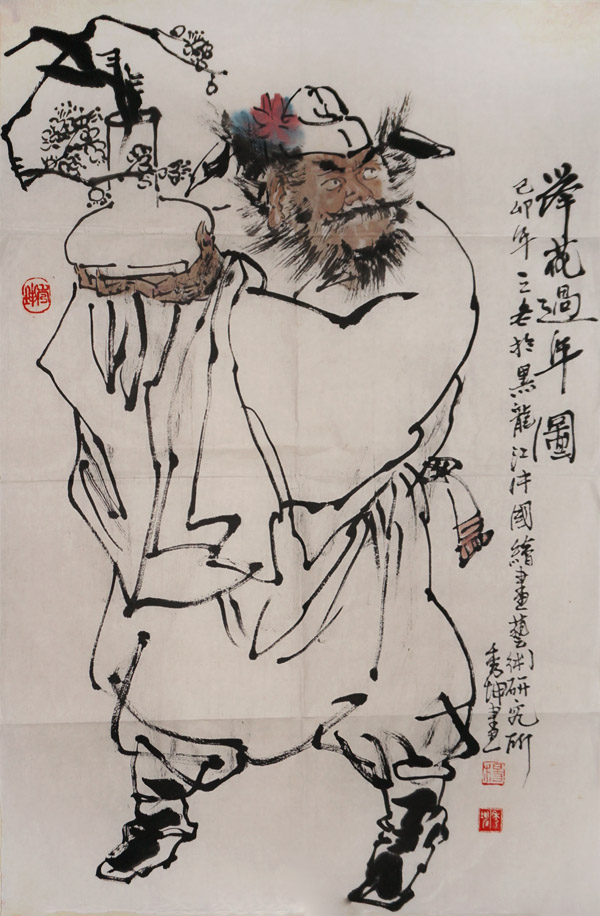 舉花過年圖
己卯年三春於黑龍江中國繪畫藝術研究所
秀坤畫